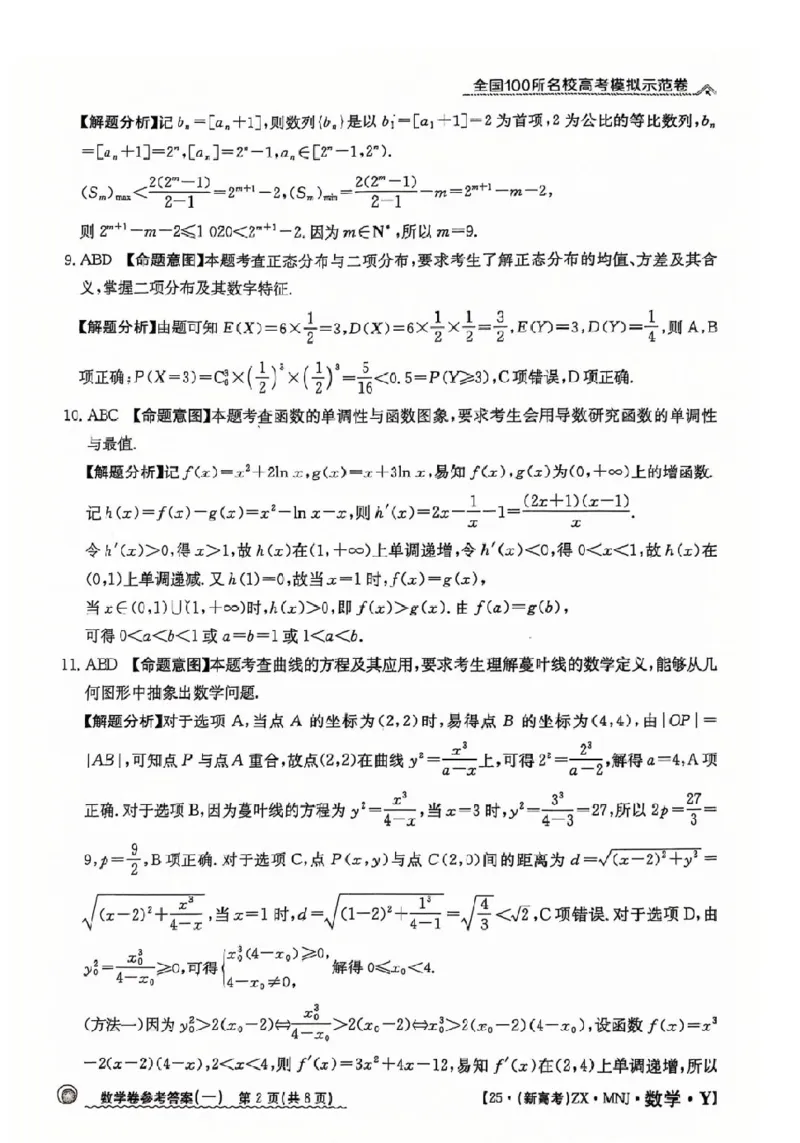 全国100所名校高考模拟示范卷
【解题分析】记 bₙ=[aₙ+1],则数列{bₙ}是以 b₁=[a₁+1]=2 为首项,2 为公比的等比数列,bₙ
=[aₙ+1]=2ⁿ,[aₙ]=2ⁿ-1,aₙ∈[2ⁿ-1,2ⁿ).
(Sₘ)max<2(2ᵐ-1)/(2-1)=2ᵐ⁺¹-2,(Sₘ)min=2(2ᵐ-1)/(2-1)-m=2ᵐ⁺¹-m-2,
则 2ᵐ⁺¹-m-2≤1 020<2ᵐ⁺¹-2.因为 m∈N*,所以 m=9.
9. ABD 【命题意图】本题考查正态分布与二项分布,要求考生了解正态分布的均值、方差及其含
义,掌握二项分布及其数字特征.
【解题分析】由题可知 E(X)=6×1/2=3,D(X)=6×1/2×1/2=3/2,E(Y)=3,D(Y)=1/4,则 A,B
项正确;P(X=3)=C₆³×(1/2)³×(1/2)³=5/16<0.5=P(Y≥3),C项错误,D项正确.
10. ABC 【命题意图】本题考查函数的单调性与函数图象,要求考生会用导数研究函数的单调性
与最值.
【解题分析】记 f(x)=x²+2ln x,g(x)=x+3ln x,易知 f(x),g(x)为(0,+∞)上的增函数.
记 h(x)=f(x)-g(x)=x²-ln x-x,则 h′(x)=2x-1/x-1=(2x+1)(x-1)/x.
令 h′(x)>0,得 x>1,故 h(x)在(1,+∞)上单调递增,令 h′(x)<0,得 0<x<1,故 h(x)在
(0,1)上单调递减.又 h(1)=0,故当 x=1 时,f(x)=g(x),
当 x∈(0,1)∪(1,+∞)时,h(x)>0,即 f(x)>g(x).由 f(a)=g(b),
可得 0<a<b<1 或 a=b=1 或 1<a<b.
11. ABD 【命题意图】本题考查曲线的方程及其应用,要求考生理解蔓叶线的数学定义,能够从几
何图形中抽象出数学问题.
【解题分析】对于选项 A,当点 A 的坐标为(2,2)时,易得点 B 的坐标为(4,4),由|OP|=
|AB|,可知点 P 与点 A 重合,故点(2,2)在曲线 y²=x³/(a-x)上,可得 2²=2³/(a-2),解得 a=4,A 项
正确.对于选项 B,因为蔓叶线的方程为 y²=x³/(4-x),当 x=3 时,y²=3³/(4-3)=27,所以 2p=27/3=
9,p=9/2,B 项正确.对于选项 C,点 P(x,y)与点 C(2,0)间的距离为 d=√((x-2)²+y²)=
√((x-2)²+x³/(4-x)),当 x=1 时,d=√((1-2)²+1³/(4-1))=√(4/3)<√2,C 项错误.对于选项 D,由
y₀²=x₀³/(4-x₀)≥0,可得{x₀³(4-x₀)≥0,4-x₀≠0,解得 0≤x₀<4.
(方法一)因为 y₀²>2(x₀-2)⇔x₀³/(4-x₀)>2(x₀-2)⇔x₀³>2(x₀-2)(4-x₀),设函数 f(x)=x³
-2(x-2)(4-x),2<x<4,则 f′(x)=3x²+4x-12,易知 f′(x)在(2,4)上单调递增,所以
数学卷参考答案(一) 第 2 页(共 8 页)
【25·(新高考)ZX·MNJ·数学·Y】